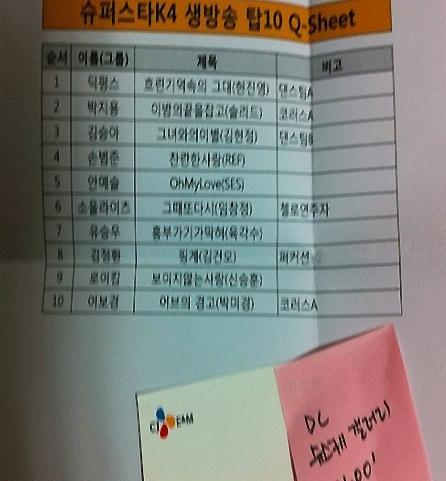 슈퍼스타K4 생방송 탑10 Q-Sheet
순서 이름(그룹) 제목 비고
1 딕펑스 흐린기억속의 그대(현진영) 댄스팀A
2 박지용 이밤의끝을잡고(솔리드) 코러스A
3 김승아 그녀와의이별(김현정) 댄스팀B
4 손범준 찬란한사랑(REF)
5 안예슬 OhMyLove(SES)
6 소울라이츠 그때또다시(임창정) 첼로연주자
7 유승우 흥부가기가막혀(육각수)
8 김정환 핑계(김건모) 퍼커션
9 로이킴 보이지않는사랑(신승훈)
10 이보경 이브의 경고(박미경) 코러스A
CJ E&M
DC
슈스케 갤러리